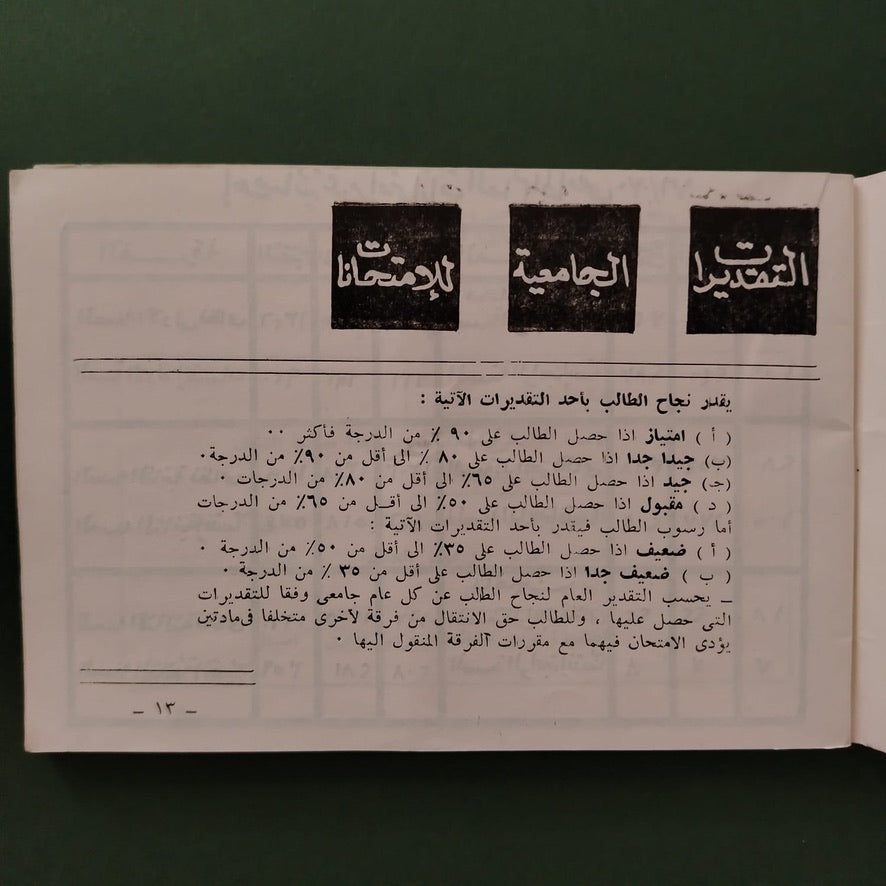 التقديرات الجامعية للامتحانات
يقدر نجاح الطالب بأحد التقديرات الآتية :
( أ ) امتياز اذا حصل الطالب على ٩٠ ٪ من الدرجة فأكثر ٠٠
(ب) جيدا جدا اذا حصل الطالب على ٨٠ ٪ الى أقل من ٩٠٪ من الدرجة٠
(جـ) جيد اذا حصل الطالب على ٦٥٪ الى أقل من ٨٠٪ من الدرجات ٠
( د ) مقبول اذا حصل الطالب على ٥٠٪ الى أقـل من ٦٥٪ من الدرجات
أما رسوب الطالب فيقدر بأحد التقديرات الآتية :
( أ ) ضعيف اذا حصل الطالب على ٣٥٪ الى أقل من ٥٠٪ من الدرجة ٠
( ب ) ضعيف جدا اذا حصل الطالب على أقل من ٣٥ ٪ من الدرجة ٠
ـ يحسب التقدير العام لنجاح الطالب عن كل عام جامعى وفقا للتقديرات
التى حصل عليها ، وللطالب حق الانتقال من فرقة لأخرى متخلفا فى مادتين
يؤدى الامتحان فيهما مع مقررات الفرقة المنقول اليها ٠
ـ ١٣ ـ